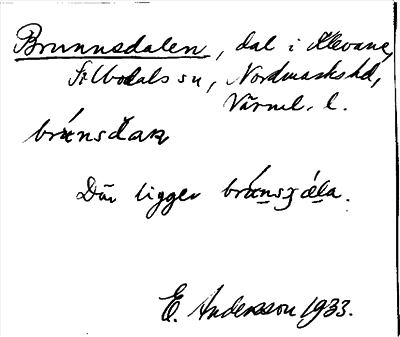 Brunnsdalen, dal i Älevane,
Silbodals sn, Nordmarks hd,
Värml. l.
brúnsdan
Där ligger brúnsʒǽla.
E. Andersson 1933.